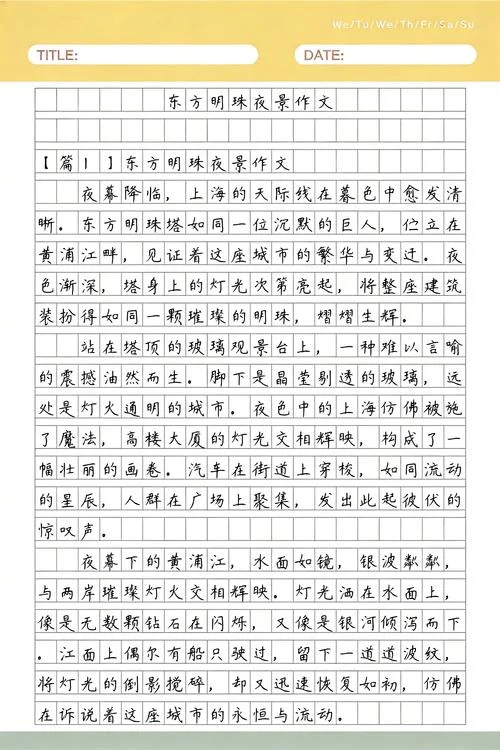 We/Tu/We/Th/Fr/Sa/Su
TITLE:
DATE:
东方明珠夜景作文
【篇1】东方明珠夜景作文
夜幕降临，上海的天际线在暮色中愈发清
晰。东方明珠塔如同一位沉默的巨人，伫立在
黄浦江畔，见证着这座城市的繁华与变迁。夜
色渐深，塔身上的灯光次第亮起，将整座建筑
装扮得如同一颗璀璨的明珠，熠熠生辉。
站在塔顶的玻璃观景台上，一种难以言喻
的震撼油然而生。脚下是晶莹剔透的玻璃，远
处是灯火通明的城市。夜色中的上海仿佛被施
了魔法，高楼大厦的灯光交相辉映，构成了一
幅壮丽的画卷。汽车在街道上穿梭，如同流动
的星辰，人群在广场上聚集，发出此起彼伏的
惊叹声。
夜幕下的黄浦江，水面如镜，银波粼粼，
与两岸璀璨灯火交相辉映。灯光洒在水面上，
像是无数颗钻石在闪烁，又像是银河倾泻而下
。江面上偶尔有船只驶过，留下一道道波纹，
将灯光的倒影搅碎，却又迅速恢复如初，仿佛
在诉说着这座城市的永恒与流动。